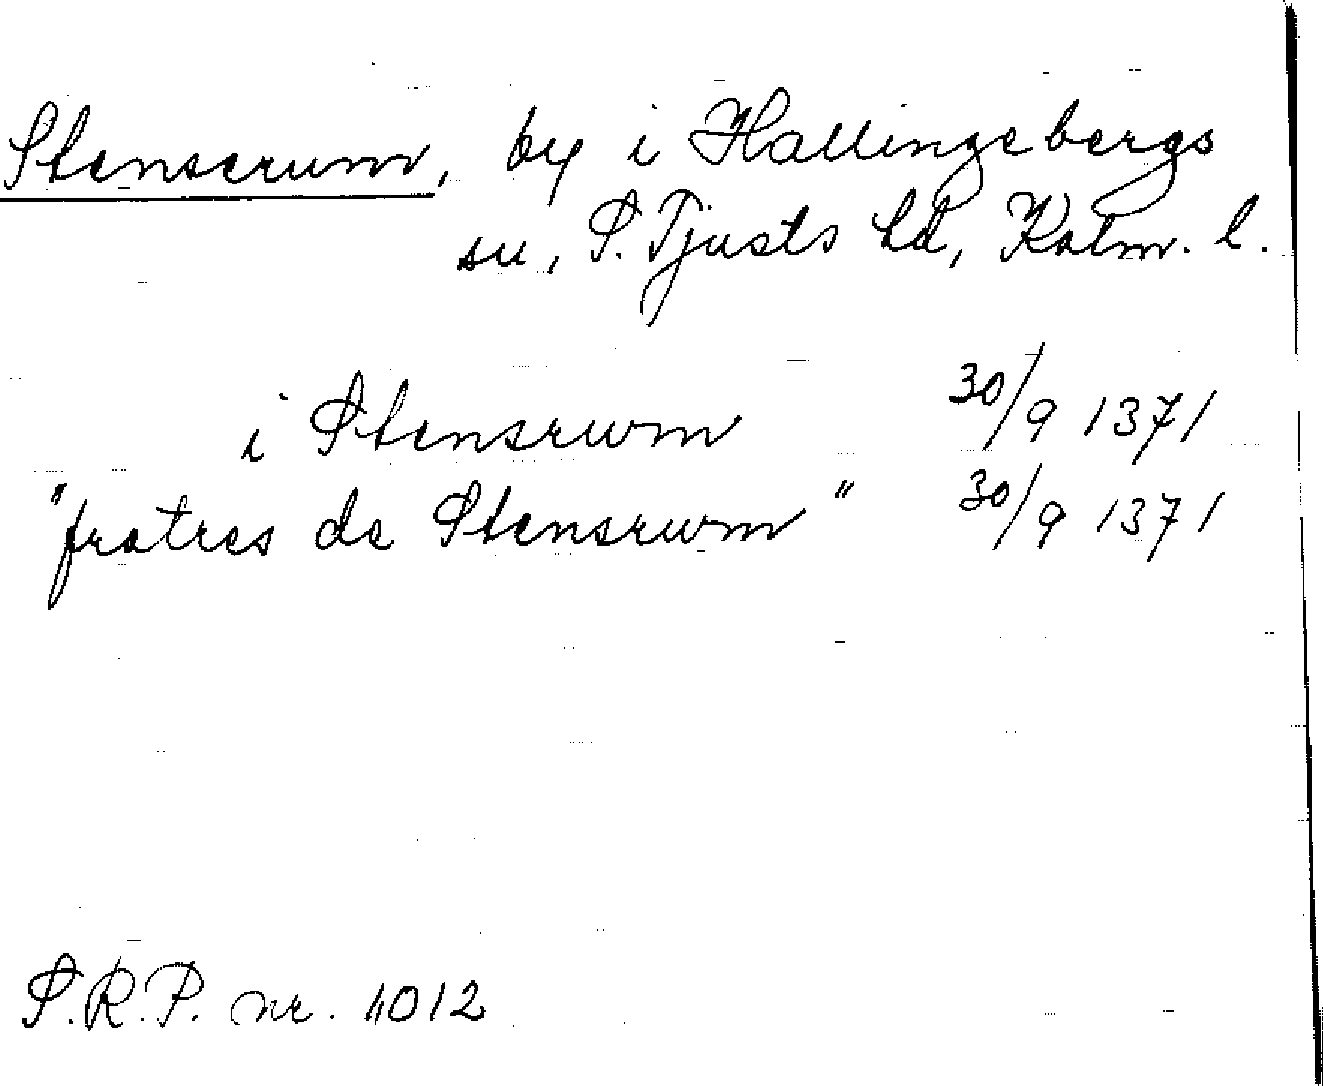 Stenserum, by i Hallingebergs
sn, S. Tjusts hd, Kalm. l.
i Stensrwm 30/9 1371
"fratres de Stensrwm" 30/9 1371
S.R.P. nr. 1012